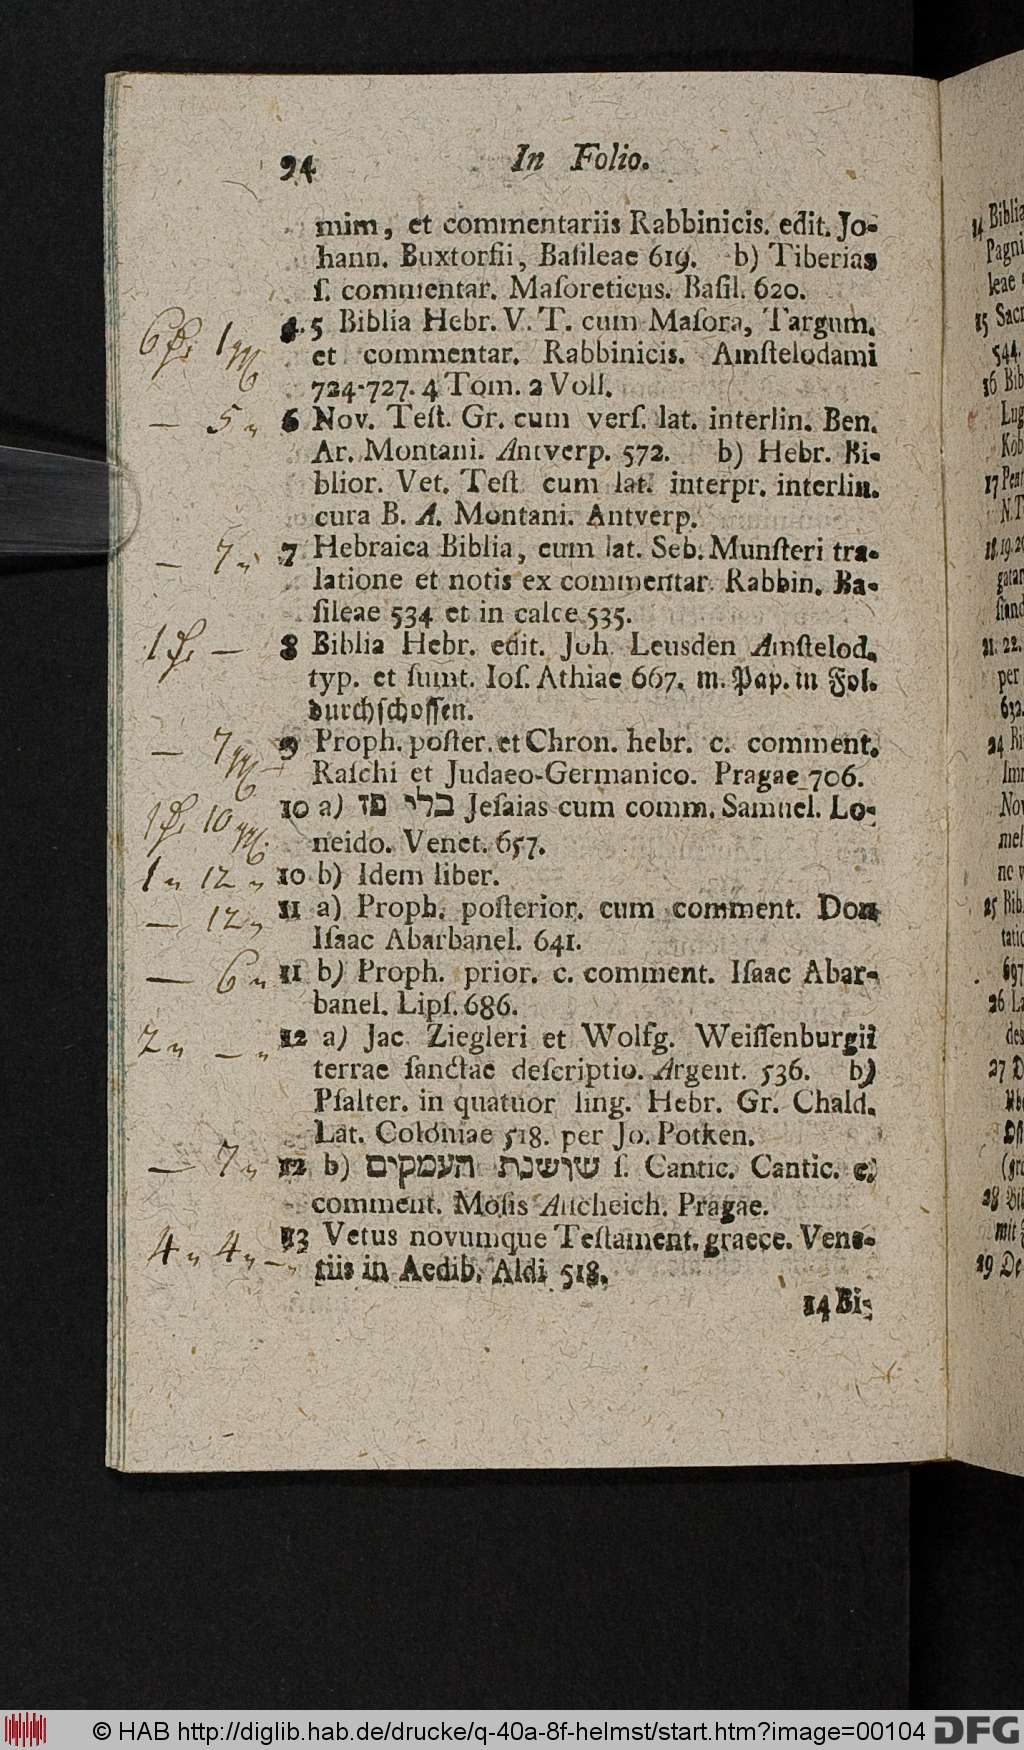 94 In Folio.
mim, et commentariis Rabbinicis. edit. Jo-
hann. Buxtorfii, Baſileae 619. b) Tiberias
ſ. commentar. Maſoreticus. Baſil. 620.
6 1 4. 5 Biblia Hebr. V. T. cum Maſora, Targum.
et commentar. Rabbinicis. Amſtelodami
724-727. 4 Tom. 2 Voll.
— 5 „ 6 Nov. Teſt. Gr. cum verſ. lat. interlin. Ben.
Ar. Montani. Antverp. 572. b) Hebr. Bi-
blior. Vet. Teſt cum lat. interpr. interlin.
cura B. A. Montani. Antverp.
— 7 „ 7 Hebraica Biblia, cum lat. Seb. Munſteri tra-
latione et notis ex commentar. Rabbin. Ba-
ſileae 534 et in calce 535.
1 — 8 Biblia Hebr. edit. Joh. Leusden Amſtelod.
typ. et ſumt. Ioſ. Athiae 667. m. Pap. in Fol.
durchſchoſſen.
— 7 9 Proph. poſter. et Chron. hebr. c. comment.
Raſchi et Judaeo-Germanico. Pragae 706.
1 10 10 a) כלי פז Jeſaias cum comm. Samuel. Lo-
neido. Venet. 657.
1 „ 12 „ 10 b) Idem liber.
— 12 „ 11 a) Proph. poſterior. cum comment. Don
Iſaac Abarbanel. 641.
— 6 „ 11 b) Proph. prior. c. comment. Iſaac Abar-
banel. Lipſ. 686.
2 „ — „ 12 a) Jac Ziegleri et Wolfg. Weiſſenburgii
terrae ſanctae deſcriptio. Argent. 536. b)
Pſalter. in quatuor ling. Hebr. Gr. Chald.
Lat. Coloniae 518. per Jo. Potken.
— 7 „ 12 b) שושנת העמקים ſ. Cantic. Cantic. c.
comment. Moſis Alſcheich. Pragae.
4 „ 4 „ — „ 13 Vetus novumque Teſtament. graece. Vene-
tiis in Aedib. Aldi 518.
14 Bi-
© HAB http://diglib.hab.de/drucke/q-40a-8f-helmst/start.htm?image=00104 DFG